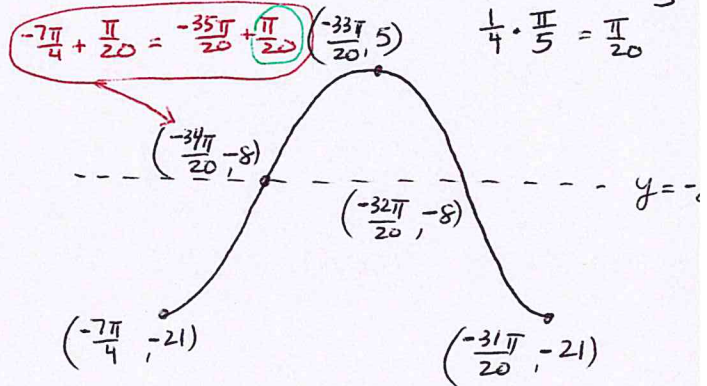 -7π/4 + π/20 = -35π/20 + π/20
(-33π/20, 5)
1/4 · π/5 = π/20
(-34π/20, -8)
(-32π/20, -8)
y = -
(-7π/4, -21)
(-31π/20, -21)